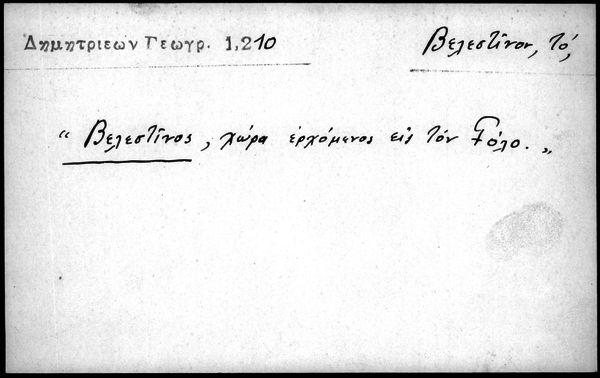 Δημητριεων Γεωγρ. 1,210
Βελεστῖνον, τό,
“ Βελεστῖνος, χώρα ἐρχόμενος εἰς τόν Γόλο. „